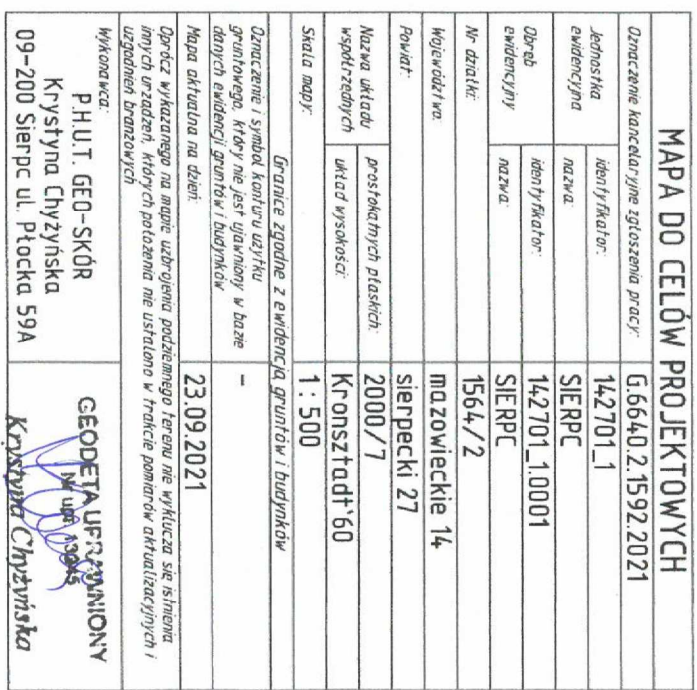 MAPA DO CELÓW PROJEKTOWYCH
Oznaczenie kancelaryjne zgłoszenia pracy: G.6640.2.1592.2021
Jednostka ewidencyjna
identyfikator: 142701_1
nazwa: SIERPC
Obręb ewidencyjny
identyfikator: 142701_1.0001
nazwa: SIERPC
Nr działki: 1564/2
Województwo: mazowieckie 14
Powiat: sierpecki 27
Nazwa układu współrzędnych
prostokątnych płaskich: 2000/7
układ wysokości: Kronsztadt'60
Skala mapy: 1:500
Granice zgodne z ewidencją gruntów i budynków
Oznaczenie i symbol konturu użytku
gruntowego, który nie jest ujawniony w bazie
danych ewidencji gruntów i budynków
-
Mapa aktualna na dzień: 23.09.2021
Oprócz wykazanego na mapie uzbrojenia podziemnego terenu nie wyklucza się istnienia
innych urządzeń, których położenia nie ustalono w trakcie pomiarów aktualizacyjnych i
uzgodnień branżowych
Wykonawca:
P.H.U.T. GEO-SKÓR
Krystyna Chyżyńska
09-200 Sierpc ul. Płocka 59A
GEODETA UPRAWNIONY
Nr upr. 13045
Krystyna Chyżyńska